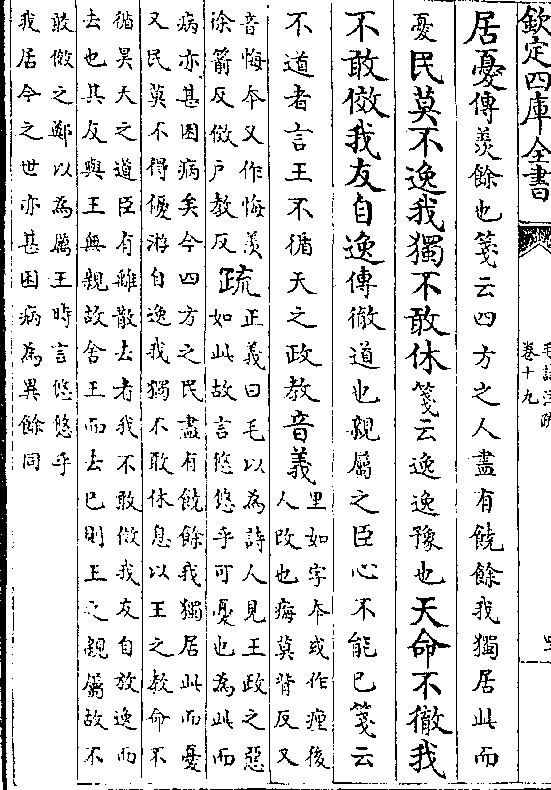 欽定四庫全書
毛詩注疏
卷十九
居憂傳羨餘也箋云四方之人盡有饒餘我獨居此而
憂民莫不逸我獨不敢休箋云逸逸豫也天命不徹我
不敢傚我友自逸傳徹道也親屬之臣心不能已箋云
不道者言王不循天之政教音義里如字本或作瘇後
人改也痗莫背反又
音悔本又作悔羨
徐箭反傚戶教反疏正義曰毛以為詩人見王政之惡
如此故言悠悠乎可憂也為此而
病亦甚困病矣今四方之民盡有饒餘我獨居此而憂
又民莫不得優游自逸我獨不敢休息以王之教命不
循昊天之道臣有離散去者我不敢傚我友自放逸而
去也其友與王無親故舍王而去已則王之親屬故不
敢傚之鄭以為厲王時言悠悠乎
我居今之世亦甚困病為異餘同